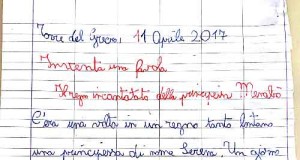 Torre del Greco, 11 Aprile 2017
Inventa una favola
Il regno incantato della principessa
C'era una volta in un regno tanto lontano
una principessa di nome Serena. Un giorno